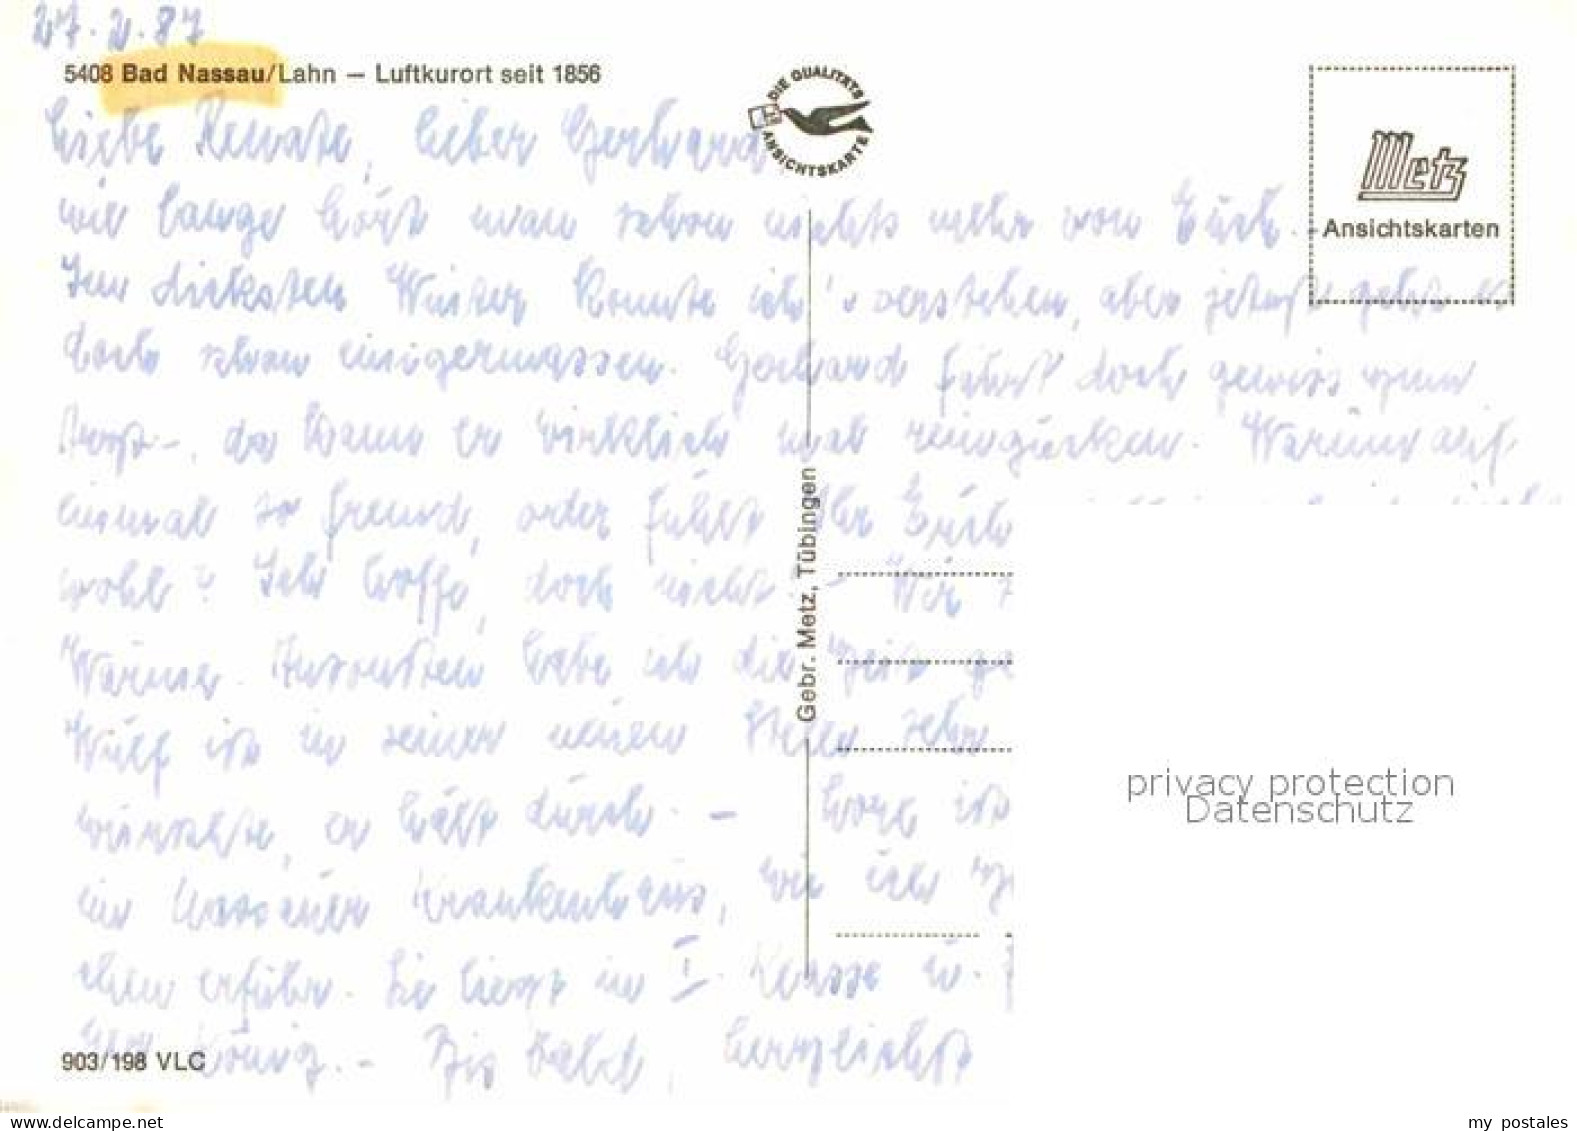 27.2.87
5408 Bad Nassau/Lahn – Luftkurort seit 1856
DIE QUALITÄTS ANSICHTSKARTE
Metz
Ansichtskarten
Liebe Renate, lieber Gerhard
wie lange hört man schon nichts mehr von Euch. -
Im dicksten Winter konnte ich's verstehen, aber jetzt geht es
doch schon einigermassen. Gerhard fährt doch gewiss zum
da kann er wirklich mal reingucken. Warum auf
einmal so fremd, oder fühlt Ihr Euch
wohl? Ich hoffe, doch nicht. - Wir
Wärme. Ansonsten habe ich die Zeit
Wulf ist in seiner neuen Stelle sehr
er hält durch. - ist
im Nassauer Krankenhaus, wie ich
eben erfuhr. Sie liegt in I. Klasse u.
König. - Bis bald, herzlichst
Gebr. Metz, Tübingen
903/198 VLC
privacy protection
Datenschutz
www.delcampe.net
my_postales